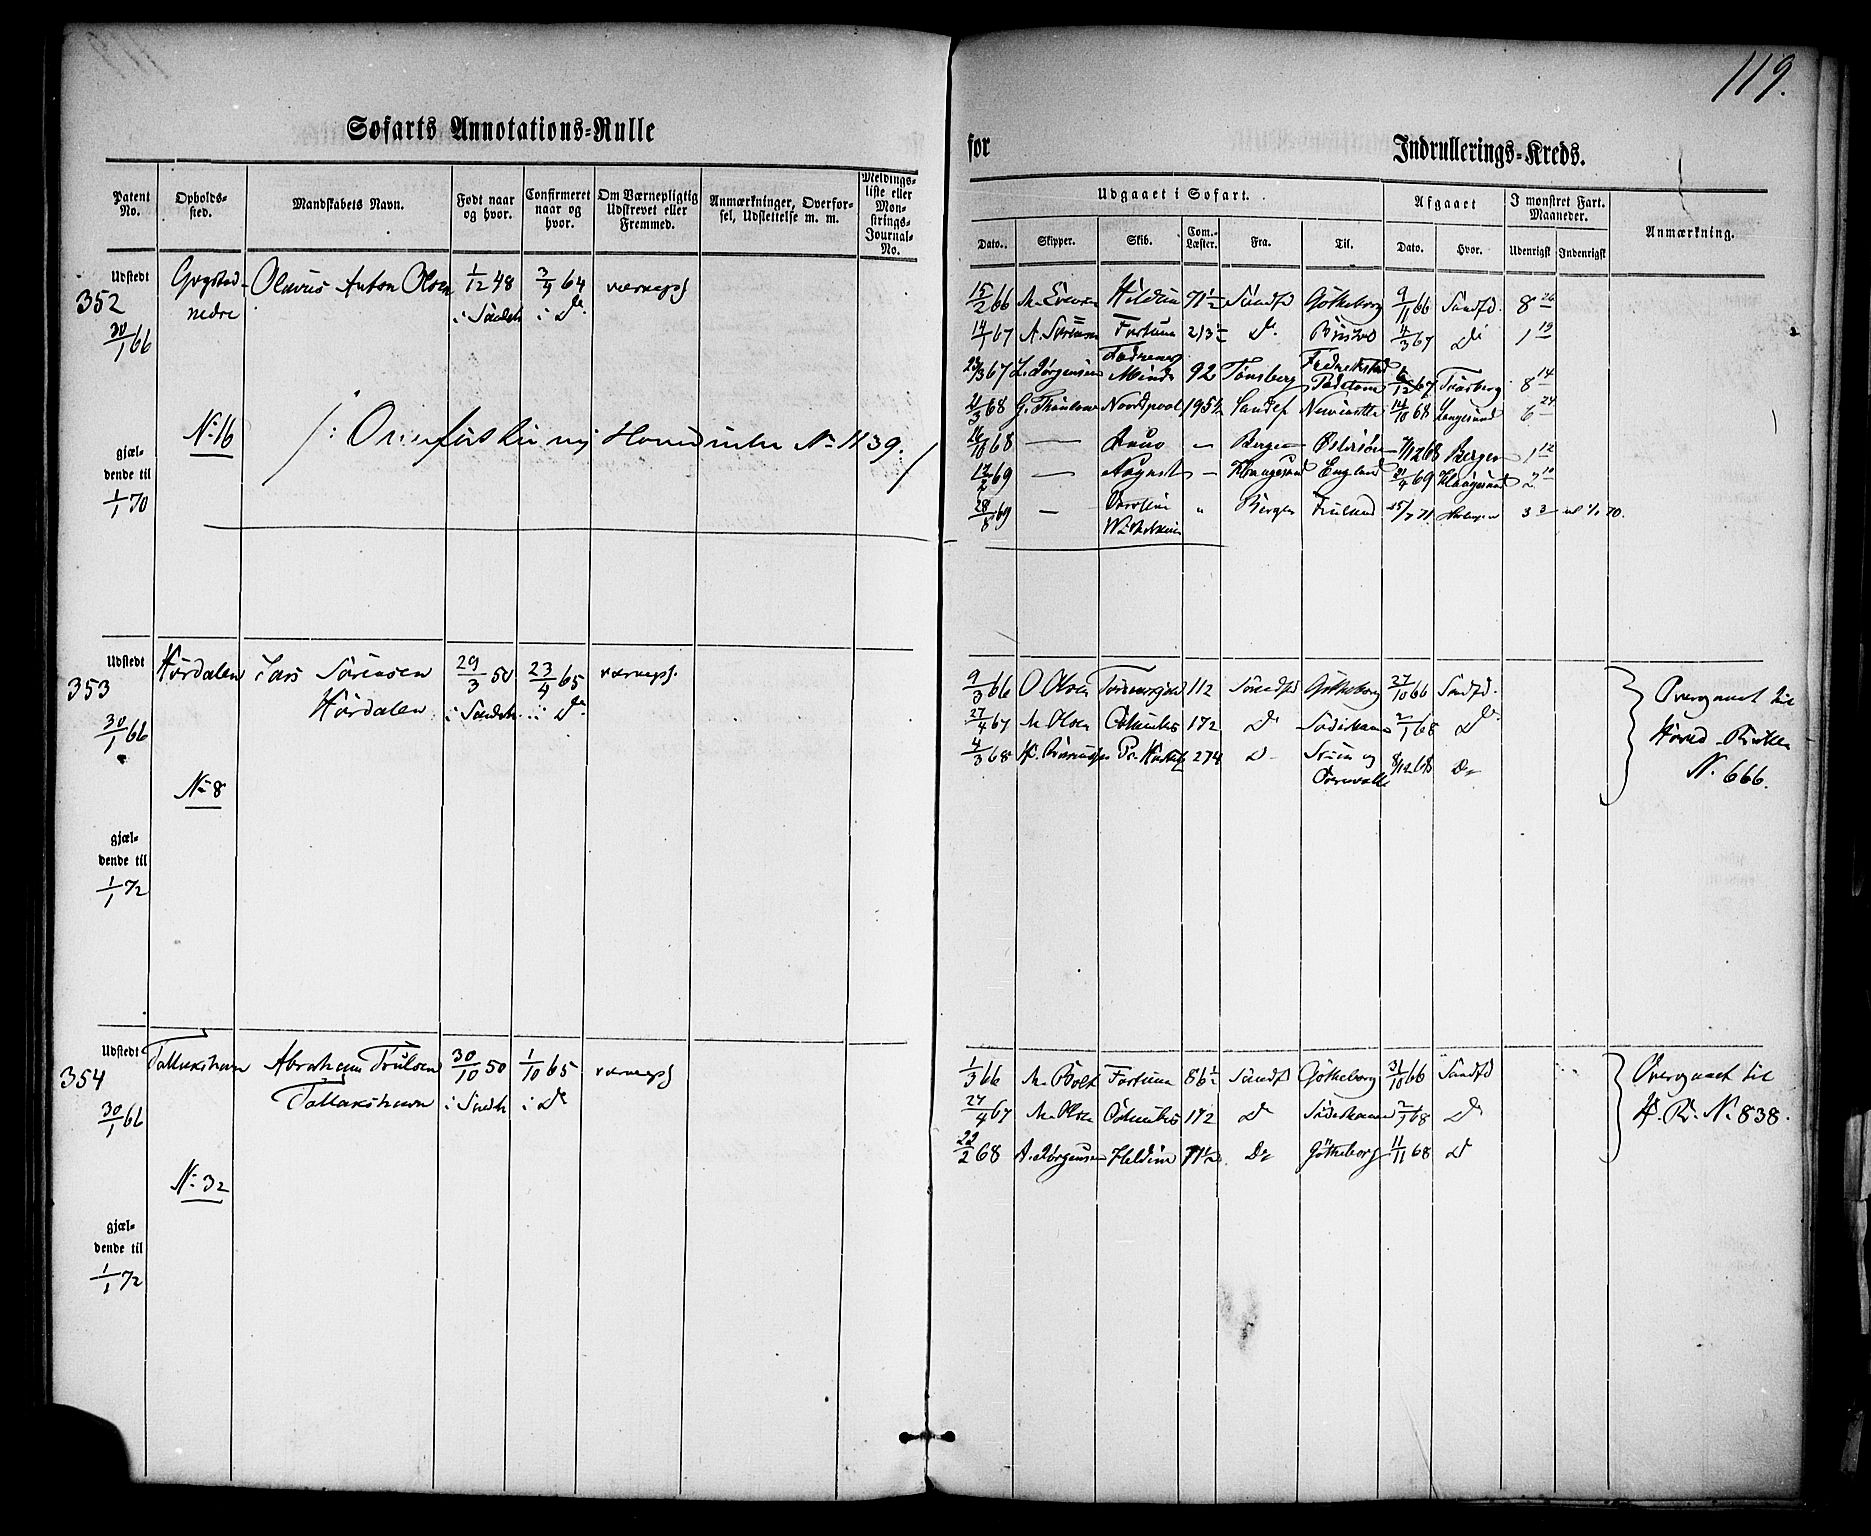 119.
Søfarts Annotations-Rulle
for Indrullerings-Kreds.
Patent No. Opholds-sted. Mandskabets Navn. Født naar og hvor. Confirmeret naar og hvor. Om Værnepligtig Udskrevet eller Fremmed. Anmærkninger, Overførsel, Udslettelse m. m. Meldings-liste eller Mønstrings-Journal-No.
Udgaaet i Søfart. Afgaaet I mønstret Fart. Maaneder. Anmærkning.
Dato. Skipper. Skib. Com.-Læster. Fra. Til. Dato. Hvor. Udenrigst Indenrigst
Udstedt
352 Gogstad nedre Olavus Anton Olsen 1/12 48 i Sandeh 3/4 64 i Do værnepl
30/1 66
No 16
/: Overført til ny Hovedrulle No 1139. /
gjæl-
dende til
1/1 70
15/2 66 M. Evensen Heldin 71½ Sandfd Gøtheborg 9/11 66 Sandfd. 8 26
14/1 67 A. Sørensen Fortuna 213 Do Bristol 4/3 67 Do 1 19
23/3 67 L. Jørgensen Fædrenes Minde 92 Tønsberg Fredrikstad 6/12 67 Tønsberg 8 14
2/3 68 Nordpool 195½ Sandef Newcastle 14/10 68 Langesund 6 24
16/10 68 — — Bergen Østersøen 7/12 68 Bergen 1 12
12/2 69 — August — Haugesund England 21/4 69 Haugesund 2 10
28/8 69 — " Bergen 25/7 71 3 3 til 1/1 70.
Udstedt
353 Hørdalen Lars Sørensen Hørdalen 29/3 50 i Sandeh. 23/4 65 i Do værnepl.
30/1 66
No 8
gjæl-
dende til
1/1 72
9/3 66 O Olsen 112 Sandfd Gøtheborg 27/10 66 Sandfd.
27/4 67 M. Olsen Columbus 172 Do 2/1 68 Do
4/3 68 274 Do 8/12 68 Do
Overgaaet til
Hoved Rullen
N. 666.
Udstedt
354 Tallakshavn Abraham Trulsen Tallakshavn 30/10 50 i Sandeh 1/10 65 i Do værnepl
30/1 66
No 32
gjæl-
dende til
1/1 72
1/3 66 M. Bolt Fortuna 86½ Sandfd Gøtheborg 31/10 66 Sandfd
27/4 67 M. Olsen Columbus 172 Do 2/1 68 Do
22/2 68 A. Jørgensen Heldin 71½ Do Gøtheborg 11/11 68 Do
Overgaaet til
H. R. N. 838.